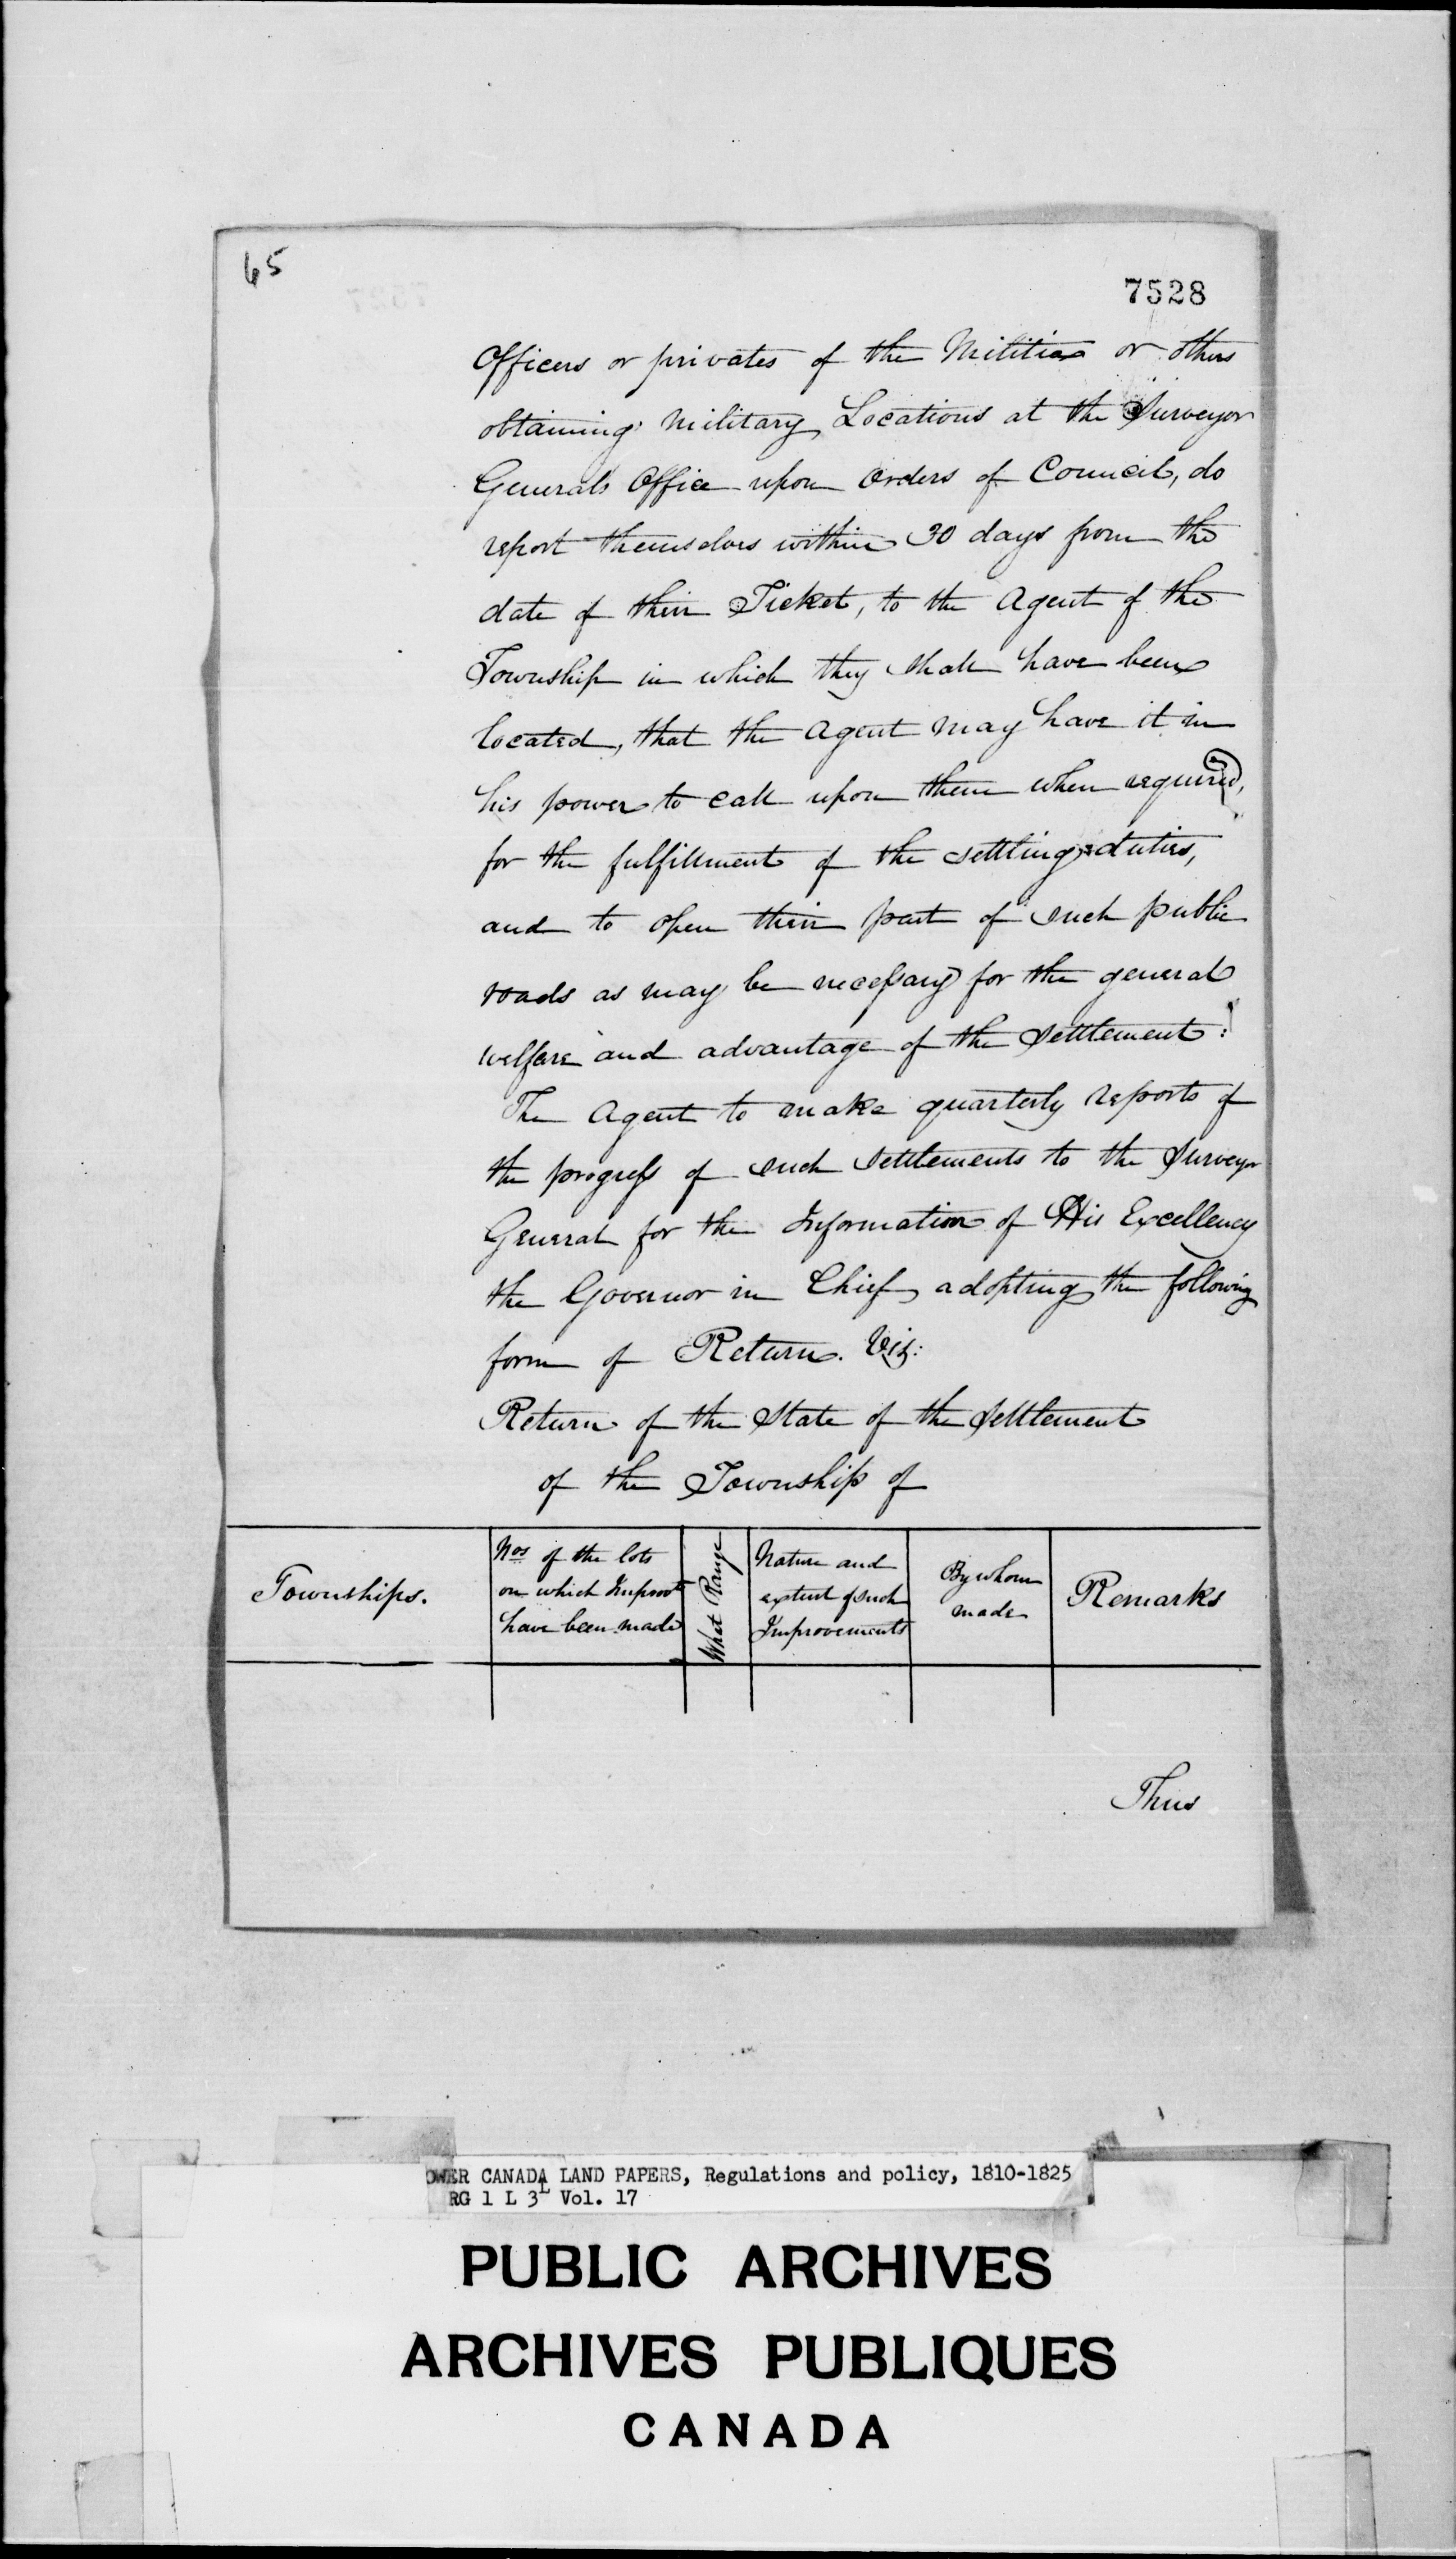 65
7528
Officers or privates of the Militia or others
obtaining Military Locations at the Surveyor
Generals Office upon Orders of Council, do
report themselves within 30 days from the
date of their Ticket, to the Agent of the
Township in which they shall have been
located, that the Agent may have it in
his power to call upon them when required,
for the fulfillment of the settling duties,
and to open their part of such public
roads as may be necessary for the general
welfare and advantage of the Settlement:
The Agent to make quarterly reports of
the progress of such Settlements to the Surveyor
General for the Information of His Excellency
the Governor in Chief adopting the following
form of Return. Viz:
Return of the State of the Settlement
of the Township of
Townships.
Nos of the lots
on which Improvt
have been made
What Range
Nature and
extent of such
Improvements
By whom
made
Remarks
Thus
OWER CANADA LAND PAPERS, Regulations and policy, 1810-1825
RG 1 L 3L Vol. 17
PUBLIC ARCHIVES
ARCHIVES PUBLIQUES
CANADA